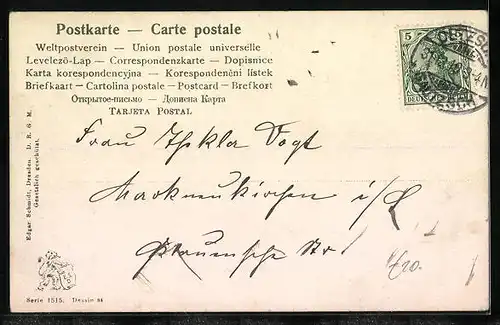 Postkarte — Carte postale
Weltpostverein — Union postale universelle
Levelező-Lap — Correspondenzkarte — Dopisnice
Karta korespondencyjna — Korespondenční lístek
Briefkaart — Cartolina postale — Postcard — Brefkort
Открытое-письмо — Дописна Карта
TARJETA POSTAL
5
Frau Thekla Vogt
Markneukirchen i/S
Plauensche Str
Edgar Schmidt, Dresden. D. R. G. M.
Gesetzlich geschützt.
Serie 1515. Dessin 84